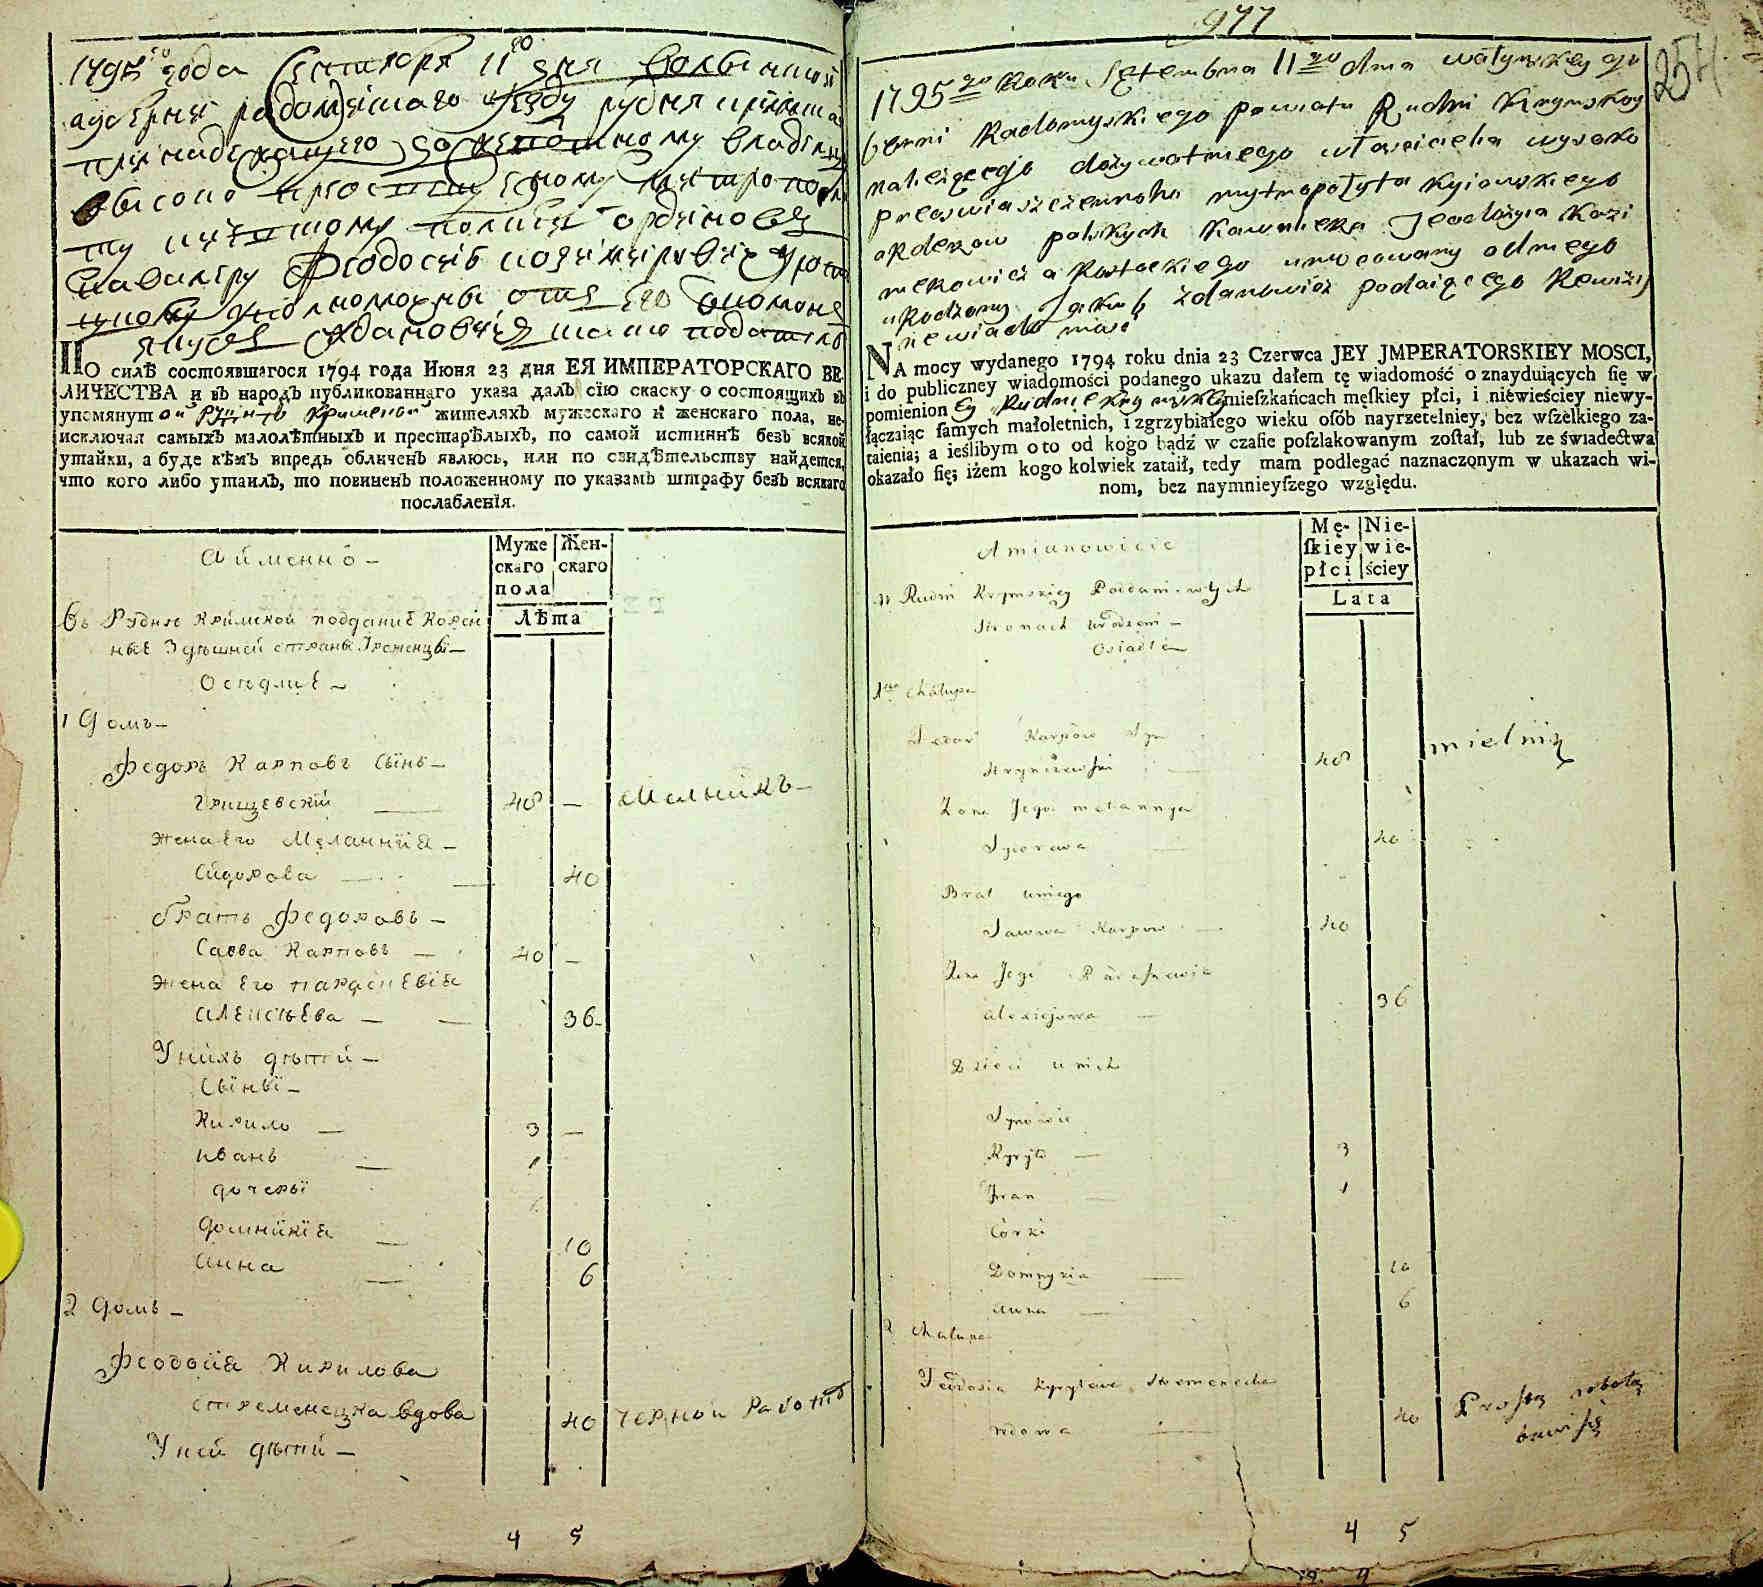 1795го года Сентября 11го дня волынской
губерніи радомышлскаго уѣзду рудня крымска
принадлежащего до жизненному владѣлцу
высоко преосвященному митрополи
ту польскихъ ордеровъ
кавалеру Феодосію
отъ его
Якубъ Ждановичъ
ПО силѣ состоявшагося 1794 года Июня 23 дня ЕЯ ИМПЕРАТОРСКАГО ВЕ-
ЛИЧЕСТВА и въ народъ публикованнаго указа далъ сїю скаску о состоящихъ въ
упомянутой Рудне Кримской жителяхъ мужескаго и женскаго пола, не-
исключая самыхъ малолѣтныхъ и престарѣлыхъ, по самой истиннѣ безъ всякой
утайки, а буде кѣмъ впредь обличенъ явлюсь, или по свидѣтельству найдется,
что кого либо утаилъ, то повиненъ положенному по указамъ штрафу безъ всякаго
послабленїя.
Аименно
Муже скаго пола
Жен- скаго
Лѣта
Въ Рудне Кримской поддание Корен
ные Здѣшней страны Уроженцы
Оседлие
1 Домъ
Федоръ Карповъ Сынъ
Грищевскій 48 — Мельникъ
Жена Его Меланнїя
Сидорова 40
братъ Федоровъ
Савва Карповъ 40 —
Жена Его Параскевїя
Алексѣева 36
У нихъ дѣти
Сыны
Кирило 3 —
Иванъ 1
дочеры
Домникїя 10
Анна 6
2 Домъ
Феодосия Кирилова
стременецка вдова 40 Черной работы
У ней дѣти
4 5
977
254
1795go Roku Septembra 11go dnia wołynskiey gu
berni Radomyskiego powiatu Rudni Krymskoy
należącego dożywotniego właściciela wysoko
preoswiaszczennoho mytropolyta kyiowskiego
orderow polskych kawalera Teodozyia Kazi
merowicza Rostockiego umocowany od niego
urodzony Jakub Zdanowicz podaiącego Rewizy
ne wiadomość
NA mocy wydanego 1794 roku dnia 23 Czerwca JEY JMPERATORSKIEY MOSCI,
i do publiczney wiadomości podanego ukazu dałem tę wiadomość o znayduiących ſię w
pomienioney Rudnie Krymskiey mieſzkańcach męſkiey płci, i niewieściey niewy-
łączaiąc ſamych małoletnich, i zgrzybiałego wieku oſób nayrzetelniey, bez wſzelkiego za-
taienia; a ieślibym o to od kogo bądź w czaſie poſzlakowanym zoſtał, lub ze świadectwa
okazało ſię; iżem kogo kolwiek zataił, tedy mam podlegać naznaczonym w ukazach wi-
nom, bez naymnieyſzego względu.
Amianowicie
Mę- ſkiey płci
Nie- wie- ściey
Lata
W Rudni Krymskiey Poddani w tych
Stronach urodzeni
Osiadłe
1sza Chałupa
Fedor Karpow Syn
Hryszczewski 48 mielnik
Zona Jego Melannya
Sydorowa 40
Brat u niego
Sawwa Karpow 40
Zona Jego Paraskewia
Alexiejowa 36
Dzieci u nich
Synowie
Kyryło 3
Iwan 1
Córki
Domnykia 10
Anna 6
2 Chałupa
Teodosia Kyryłowa Stremenecka
wdowa 40 Prostą robotą bawi się
4 5